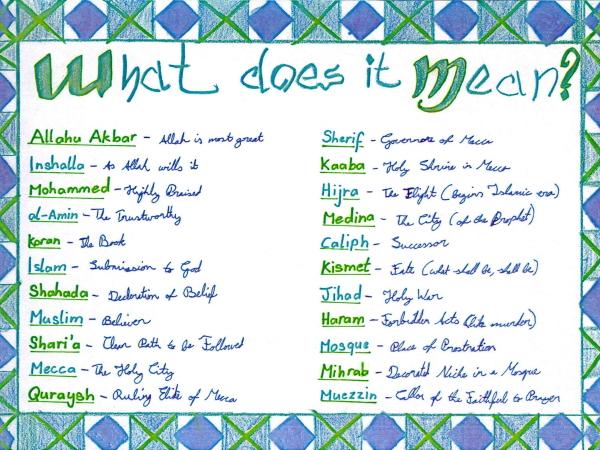 What does it Mean?
Allahu Akbar - Allah is most great
Inshalla - As Allah wills it
Mohammed - Highly Praised
al-Amin - The Trustworthy
Koran - The Book
Islam - Submission to God
Shahada - Declaration of Belief
Muslim - Believer
Shari'a - Clear Path to be Followed
Mecca - The Holy City
Quraysh - Ruling Elite of Mecca
Sherif - Governors of Mecca
Kaaba - Holy Shrine in Mecca
Hijra - The Flight (begins Islamic era)
Medina - The City (of the Prophet)
Caliph - Successor
Kismet - Fate (what shall be, shall be)
Jihad - Holy War
Haram - Forbidden Acts (like murder)
Mosque - Place of Prostration
Mihrab - Decorated Niche in a Mosque
Muezzin - Caller of the Faithful to Prayer